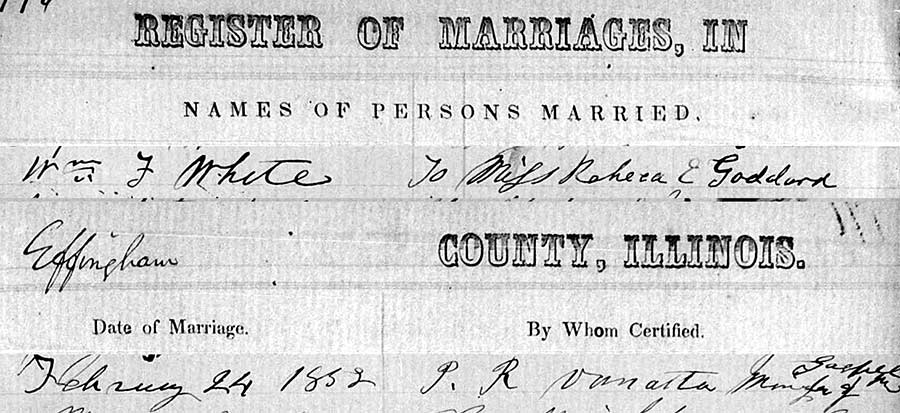 REGISTER OF MARRIAGES, IN
NAMES OF PERSONS MARRIED.
Wm F White To Miss Rebeca E Goddard
Effingham COUNTY, ILLINOIS.
Date of Marriage. By Whom Certified.
February 24 1852 P. R Vanatta